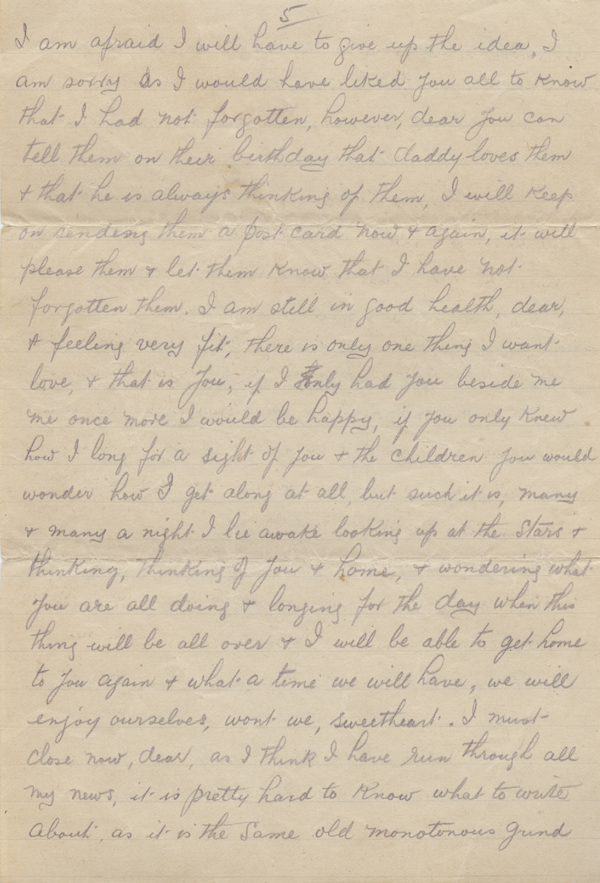 5
I am afraid I will have to give up the idea, I
am sorry as I would have liked you all to know
that I had not forgotten, however, dear you can
tell them on their birthday that daddy loves them
& that he is always thinking of them, I will keep
on sending them a post card now & again, it will
please them & let them know that I have not
forgotten them. I am still in good health, dear,
& feeling very fit, there is only one thing I want
love, & that is you, if I only had you beside me
me once more I would be happy, if you only knew
how I long for a sight of you & the children you would
wonder how I get along at all, but such it is, many
& many a night I lie awake looking up at the stars &
thinking, thinking of you & home, & wondering what
you are all doing & longing for the day when this
thing will be all over & I will be able to get home
to you again & what a time we will have, we will
enjoy ourselves, wont we, sweetheart. I must
close now, dear, as I think I have run through all
my news, it is pretty hard to know what to write
about, as it is the same old monotonous grind